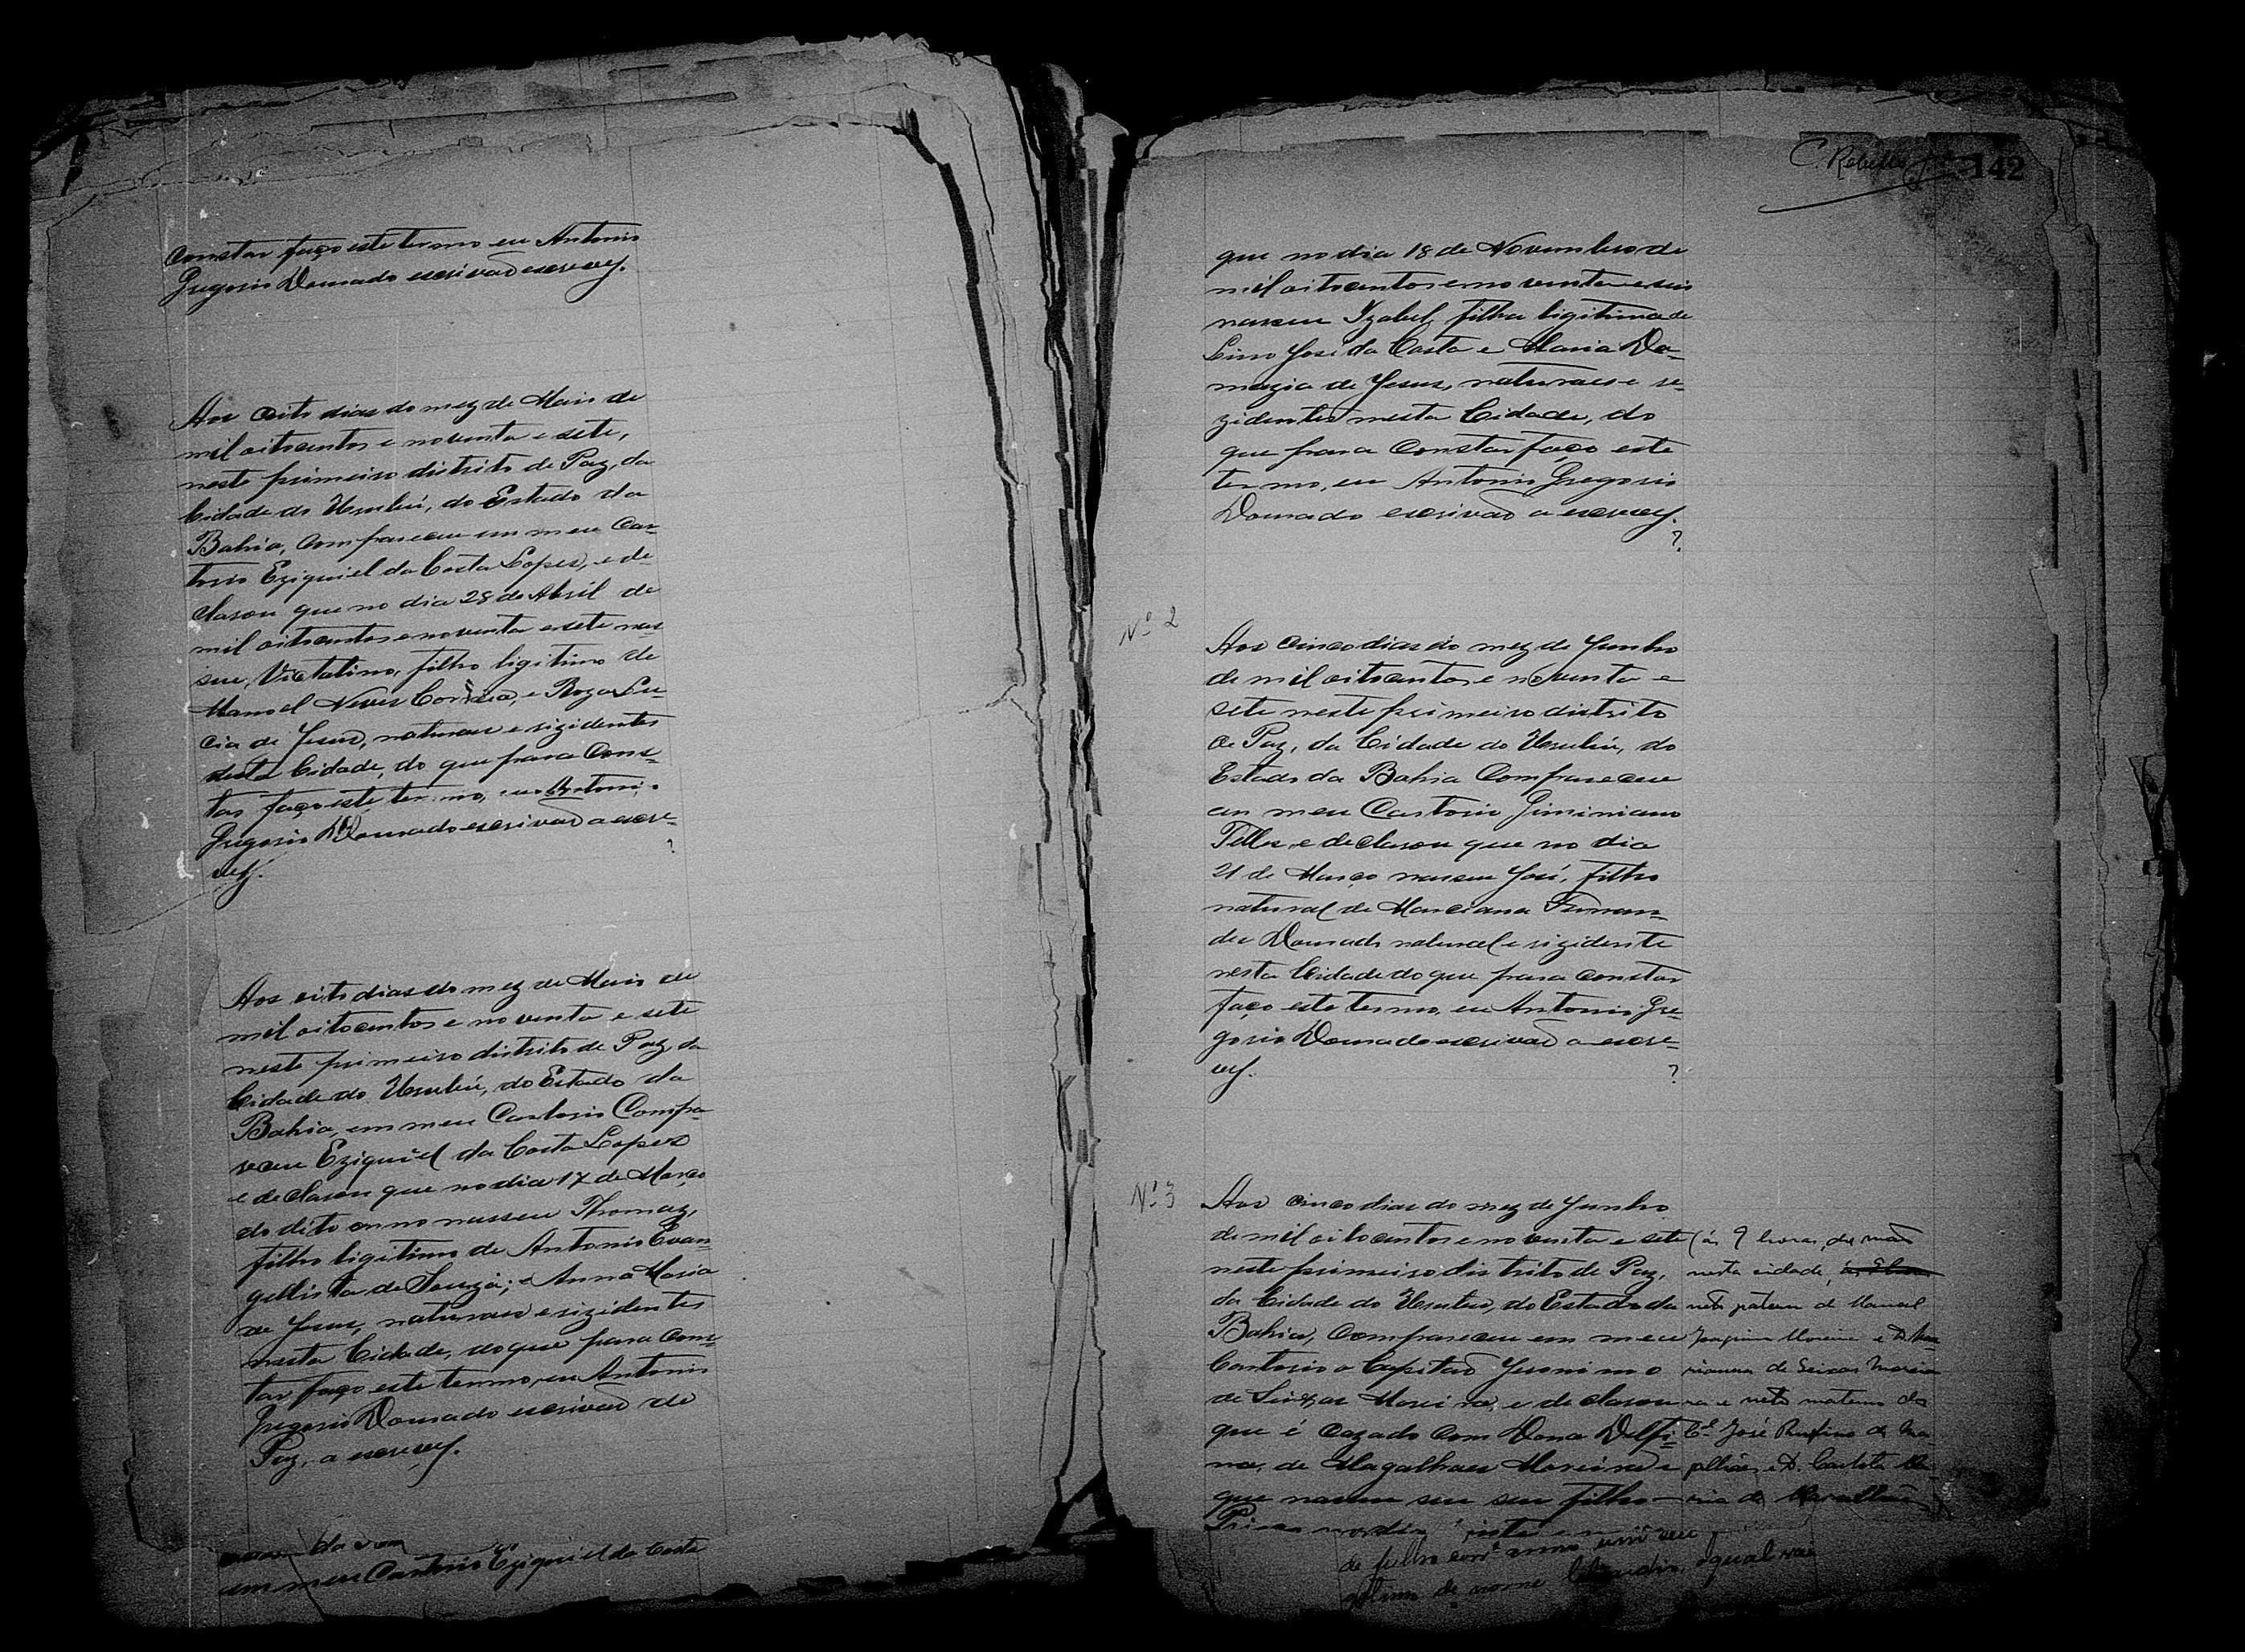 constar faço este termo eu Antonio
Gregorio Dourado escrivão escrevy.
Aos oito dias do mez de Maio de
mil oitocentos e noventa e sete,
neste primeiro distrito de Paz, da
Cidade do Urubú, do Estado da
Bahia, compareceu em meu Car-
torio Eziquiel da Costa Lopes, e de-
clarou que no dia 28 de Abril de
mil oitocentos e noventa e sete nas
seu, Victalino, filho ligitimo de
Manoel Neves Corrêia, e Roza Lu
cia de Jesus, naturaes e rizidentes
desta Cidade, do que para Cons-
tar faço este termo, eu Antonio
Gregorio Dourado escrivão a escre-
vy.
Aos oito dias do mez de Maio de
mil oitocentos e noventa e sete
neste primeiro distrito de Paz, da
Cidade do Urubú, do Estado da
Bahia, em meu Cartorio Compa-
receu Eziquiel da Costa Lopes
e declarou que no dia 17 de Março
do dito anno nasseu Thomaz,
filho ligitimo de Antonio Evan-
gellista de Souza; e Anna Maria
de Jesus, naturaes e rizidentes
nesta Cidade, do que para Cons-
tar faço este termo, eu Antonio
Gregorio Dourado escrivão de
Paz, a escrevy.
em meu Cartorio Eziquiel da Costa
C. Rebello 142
que no dia 18 de Novembro de
mil oitocentos e noventa e seis
nasceu Izabel, filha ligitima de
Lino José da Costa e Maria Da-
mazia de Jesus, naturaes e re-
zidentes nesta Cidade, do
que para Constar faço este
termo, eu Antonio Gregorio
Dourado escrivão a escrevy.
Nº 2
Aos cinco dias do mez de Junho
de mil oitocentos e noventa e
sete neste primeiro distrito
de Paz, da Cidade do Urubú, do
Estado da Bahia Compareceu
em meu Cartorio Giminiano
Telles, e declarou que no dia
21 de Março nasceu José, filho
natural de Marciana Fernan-
des Dourado natural e rizidente
nesta Cidade do que para constar
faço este termo, eu Antonio Gre-
gorio Dourado escrivão a escre-
vy.
Nº 3
Aos cinco dias do mez de Junho
de mil oitocentos e noventa e sete
neste primeiro distrito de Paz,
da Cidade do Urubú, do Estado da
Bahia, Compareceu em meu
Cartorio o Capitão Jeronimo
de Seixas Moreira, e declarou
que é cazado com Dona Delfi-
na, de Magalhaes Moreira e
que nasceu seu filho
(ás 9 horas, da manã
nesta cidade,
neto paterno de Manoel
Joaquim Moreira e D.
rianna de Seixas Morei
ra e neto materno do
Cel José Rufino de Ma-
galhães e D. Carlota Ma-
ria de Magalhães)
de Julho
de nome